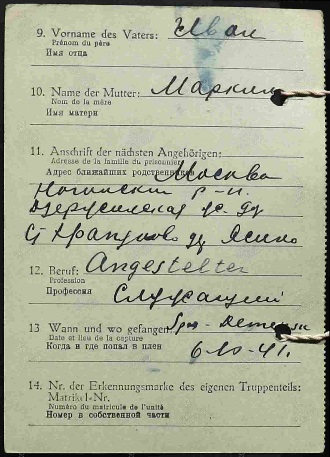 9. Vorname des Vaters: Иван
Prénom du père
Имя отца
10. Name der Mutter:
Nom de la mère
Имя матери
11. Anschrift der nächsten Angehörigen:
Adresse de la famille du prisonnier
Адрес ближайших родственников Москва
Ногинский р-н.
12. Beruf: Angestelter
Profession
Профессия Служащий
13 Wann und wo gefangen:
Date et lieu de la capture
Когда и где попал в плен 6-10-41.
14. Nr. der Erkennungsmarke des eigenen Truppenteils:
Matrikel-Nr.
Numéro du matricule de l'unité
Номер в собственной части